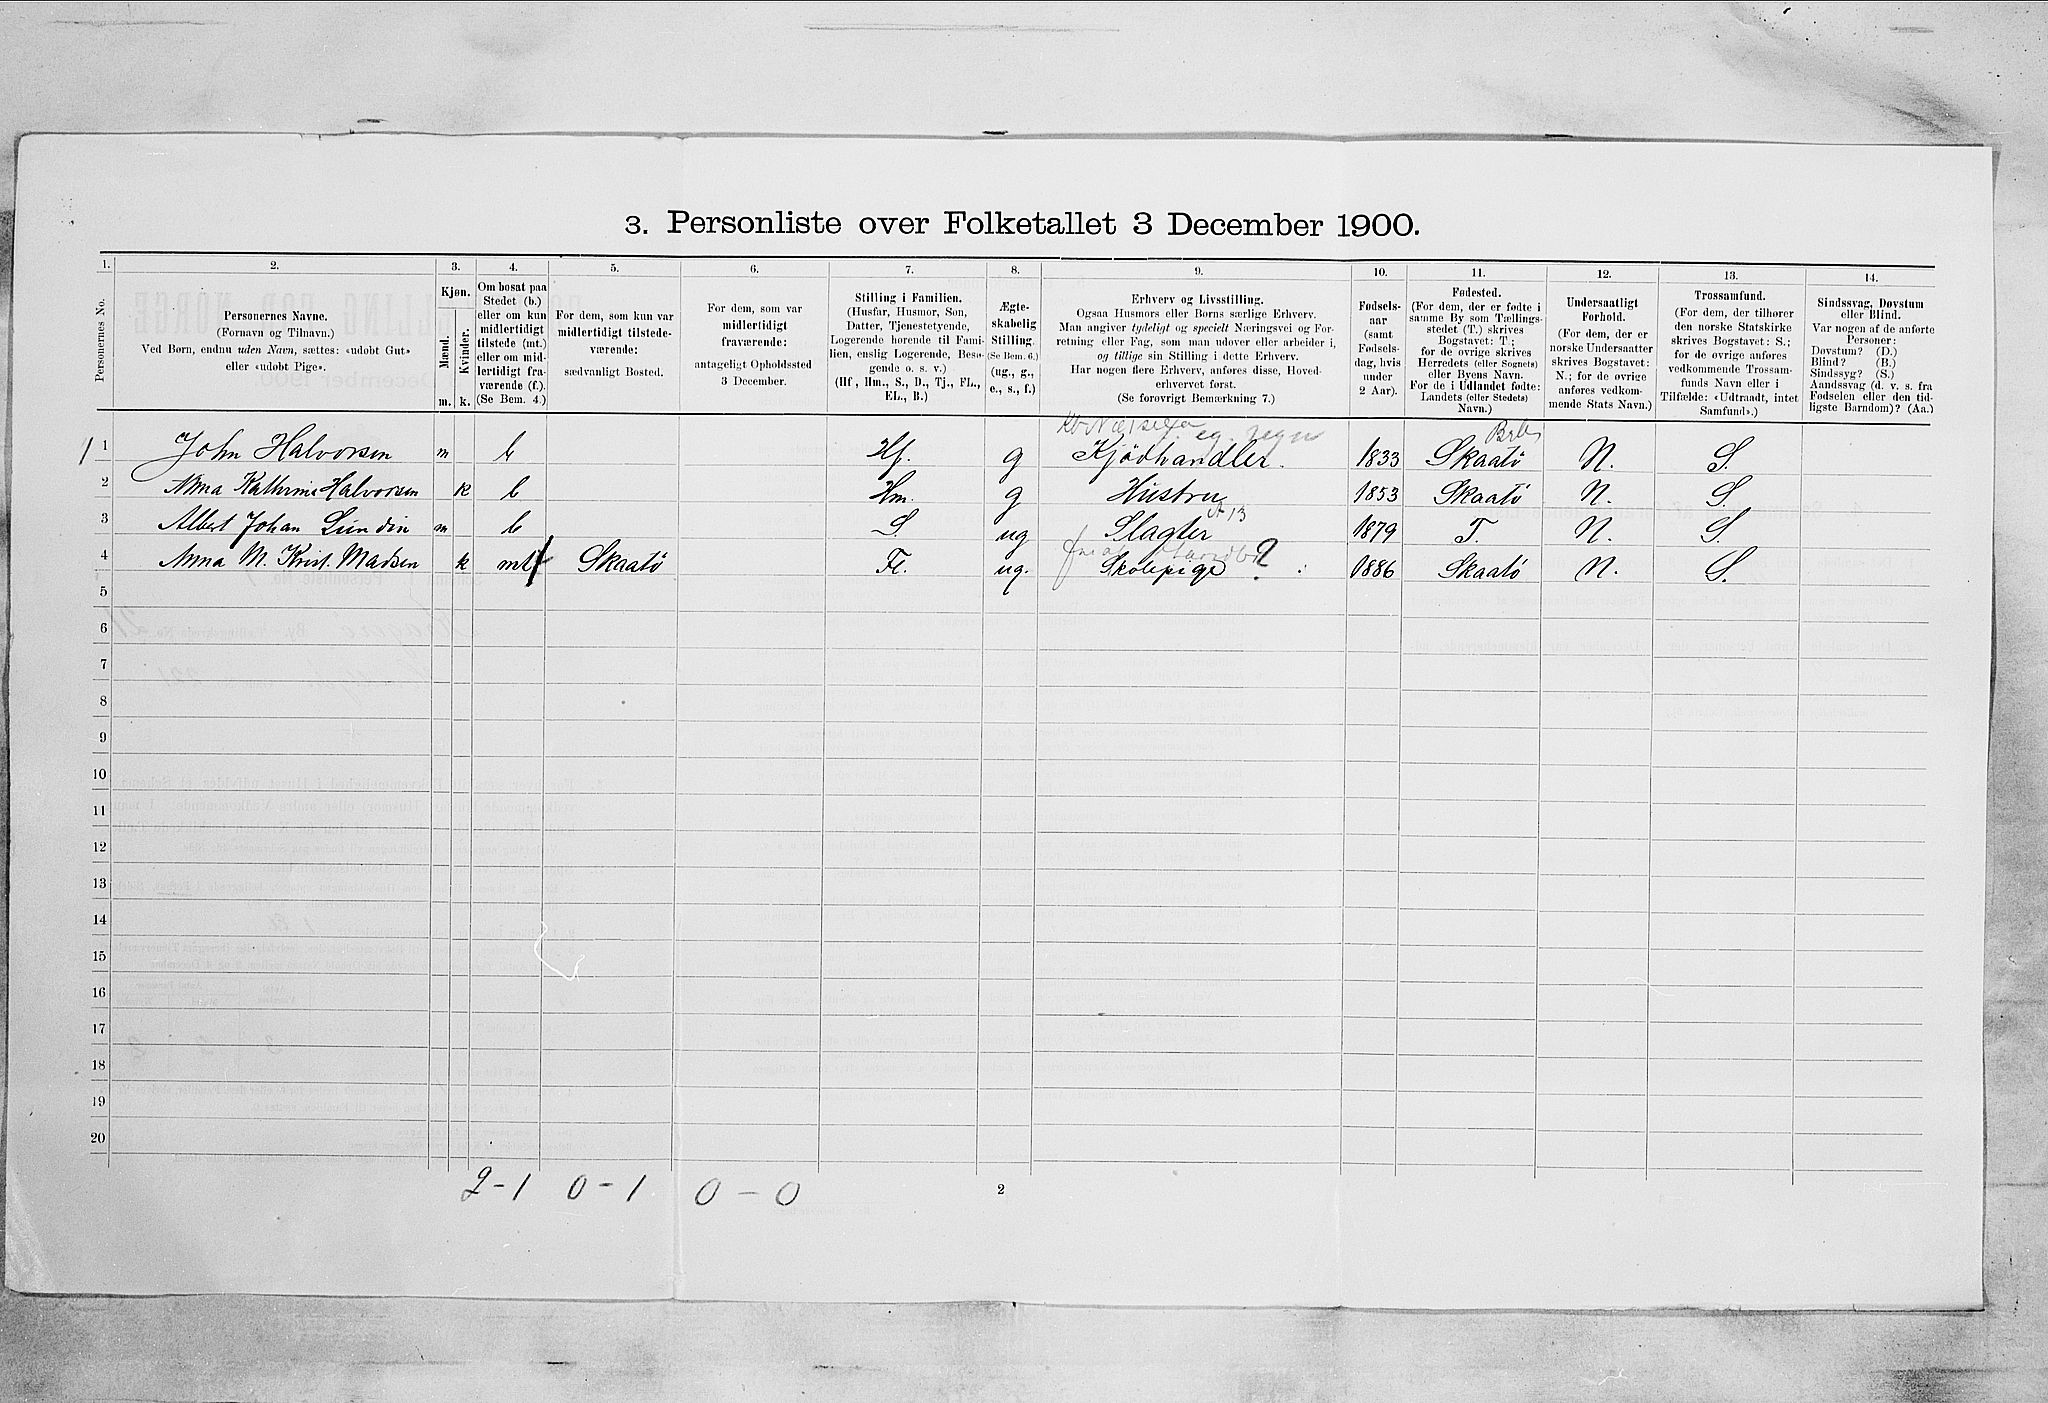 3. Personliste over Folketallet 3 December 1900.
1. 2. 3. 4. 5. 6. 7. 8. 9. 10. 11. 12. 13. 14.
Personernes No.
Personernes Navne.
(Fornavn og Tilnavn.)
Ved Børn, endnu uden Navn, sættes: «udobt Gut»
eller «udobt Pige».
Kjøn.
Mænd.
Kvinder.
m. k.
Om bosat paa
Stedet (b.)
eller om kun
midlertidigt
tilstede (mt.)
eller om mid-
lertidigt fra-
værende (f.)
(Se Bem. 4.)
For dem, som kun var
midlertidigt tilstede-
værende:
sædvanligt Bosted.
For dem, som var
midlertidigt
fraværende:
antageligt Opholdssted
3 December.
Stilling i Familien.
(Husfar, Husmor, Søn,
Datter, Tjenestetyende,
Logerende hørende til Fami-
lien, enslig Logerende, Besø-
gende o. s. v.)
(Hf., Hm., S., D., Tj., FL.,
EL., B.)
Ægte-
skabelig
Stilling.
(Se Bem. 6.)
(ug., g.,
e., s., f.)
Erhverv og Livsstilling.
Ogsaa Husmors eller Børns særlige Erhverv.
Man angiver tydeligt og specielt Næringsvei og For-
retning eller Fag, som man udøver eller arbeider i,
og tillige sin Stilling i dette Erhverv.
Har nogen flere Erhverv, anføres disse, Hoved-
erhvervet først.
(Se forøvrigt Bemærkning 7.)
Fødsels-
aar
(samt
Fødsels-
dag, hvis
under
2 Aar).
Fødested.
(For dem, der er fødte i
samme By som Tællings-
stedet (T.) skrives
Bogstavet: T.;
for de øvrige skrives
Herredets (eller Sognets)
eller Byens Navn.
For de i Udlandet fødte:
Landets (eller Stedets)
Navn.)
Undersaatligt
Forhold.
(For dem, der er
norske Undersaatter
skrives Bogstavet:
N.; for de øvrige
anføres vedkom-
mende Stats Navn.)
Trossamfund.
(For dem, der tilhører
den norske Statskirke
skrives Bogstavet: S.;
for de øvrige anføres
vedkommende Trossam-
funds Navn eller i
Tilfælde: «Udtraadt, intet
Samfund».)
Sindssvag, Døvstum
eller Blind.
Var nogen af de anførte
Personer:
Døvstum? (D.)
Blind? (B.)
Sindssyg? (S.)
Aandssvag (d. v. s. fra
Fødselen eller den tid-
ligste Barndom)? (Aa.)
1 John Halvorsen m b Hf. g Kjødhandler. 1833 Skaatö N. S.
2 Anna Kathrine Halvorsen k b Hm. g Hustru 1853 Skaatö N. S.
3 Albert Johan Lundin m b S ug Slagter 1879 T. N. S.
4 Anna M. Krist. Madsen k mt Skaatö Fl. ug. Skolepige ? 1886 Skaatö N. S.
5
6
7
8
9
10
11
12
13
14
15
16
17
18
19
20
2-1 0-1 0-0
2